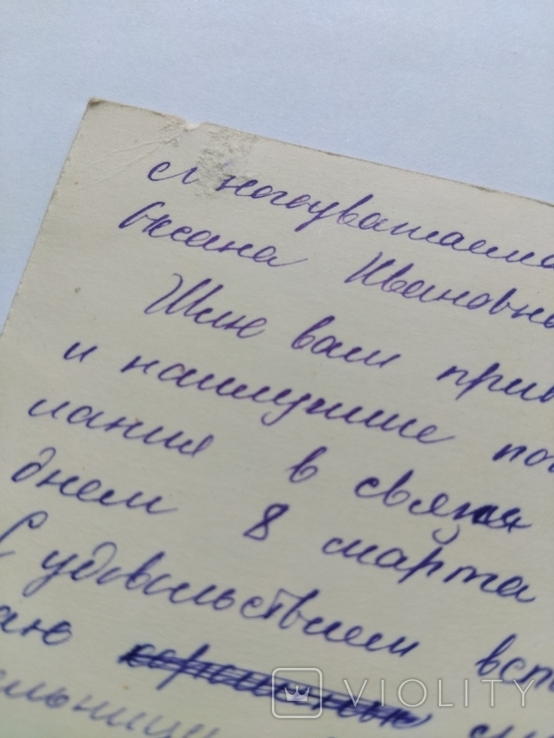 Многоуважаема
Оксана Ивановна
Шлю вам прив
и наилучшие по
лания в связи
днем 8 марта
С удовольствием всп
аю
ельниц
VIOLITY